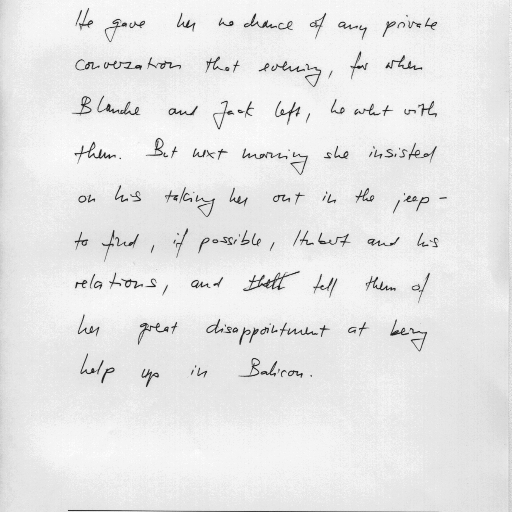 He gave her no chance of any private
conversation that evening, for when
Blanche and Jack left, he went with
them. But next morning she insisted
on his taking her out in the jeep -
to find, if possible, Hubert and his
relations, and tell them of
her great disappointment at being
help up in Bahiron.